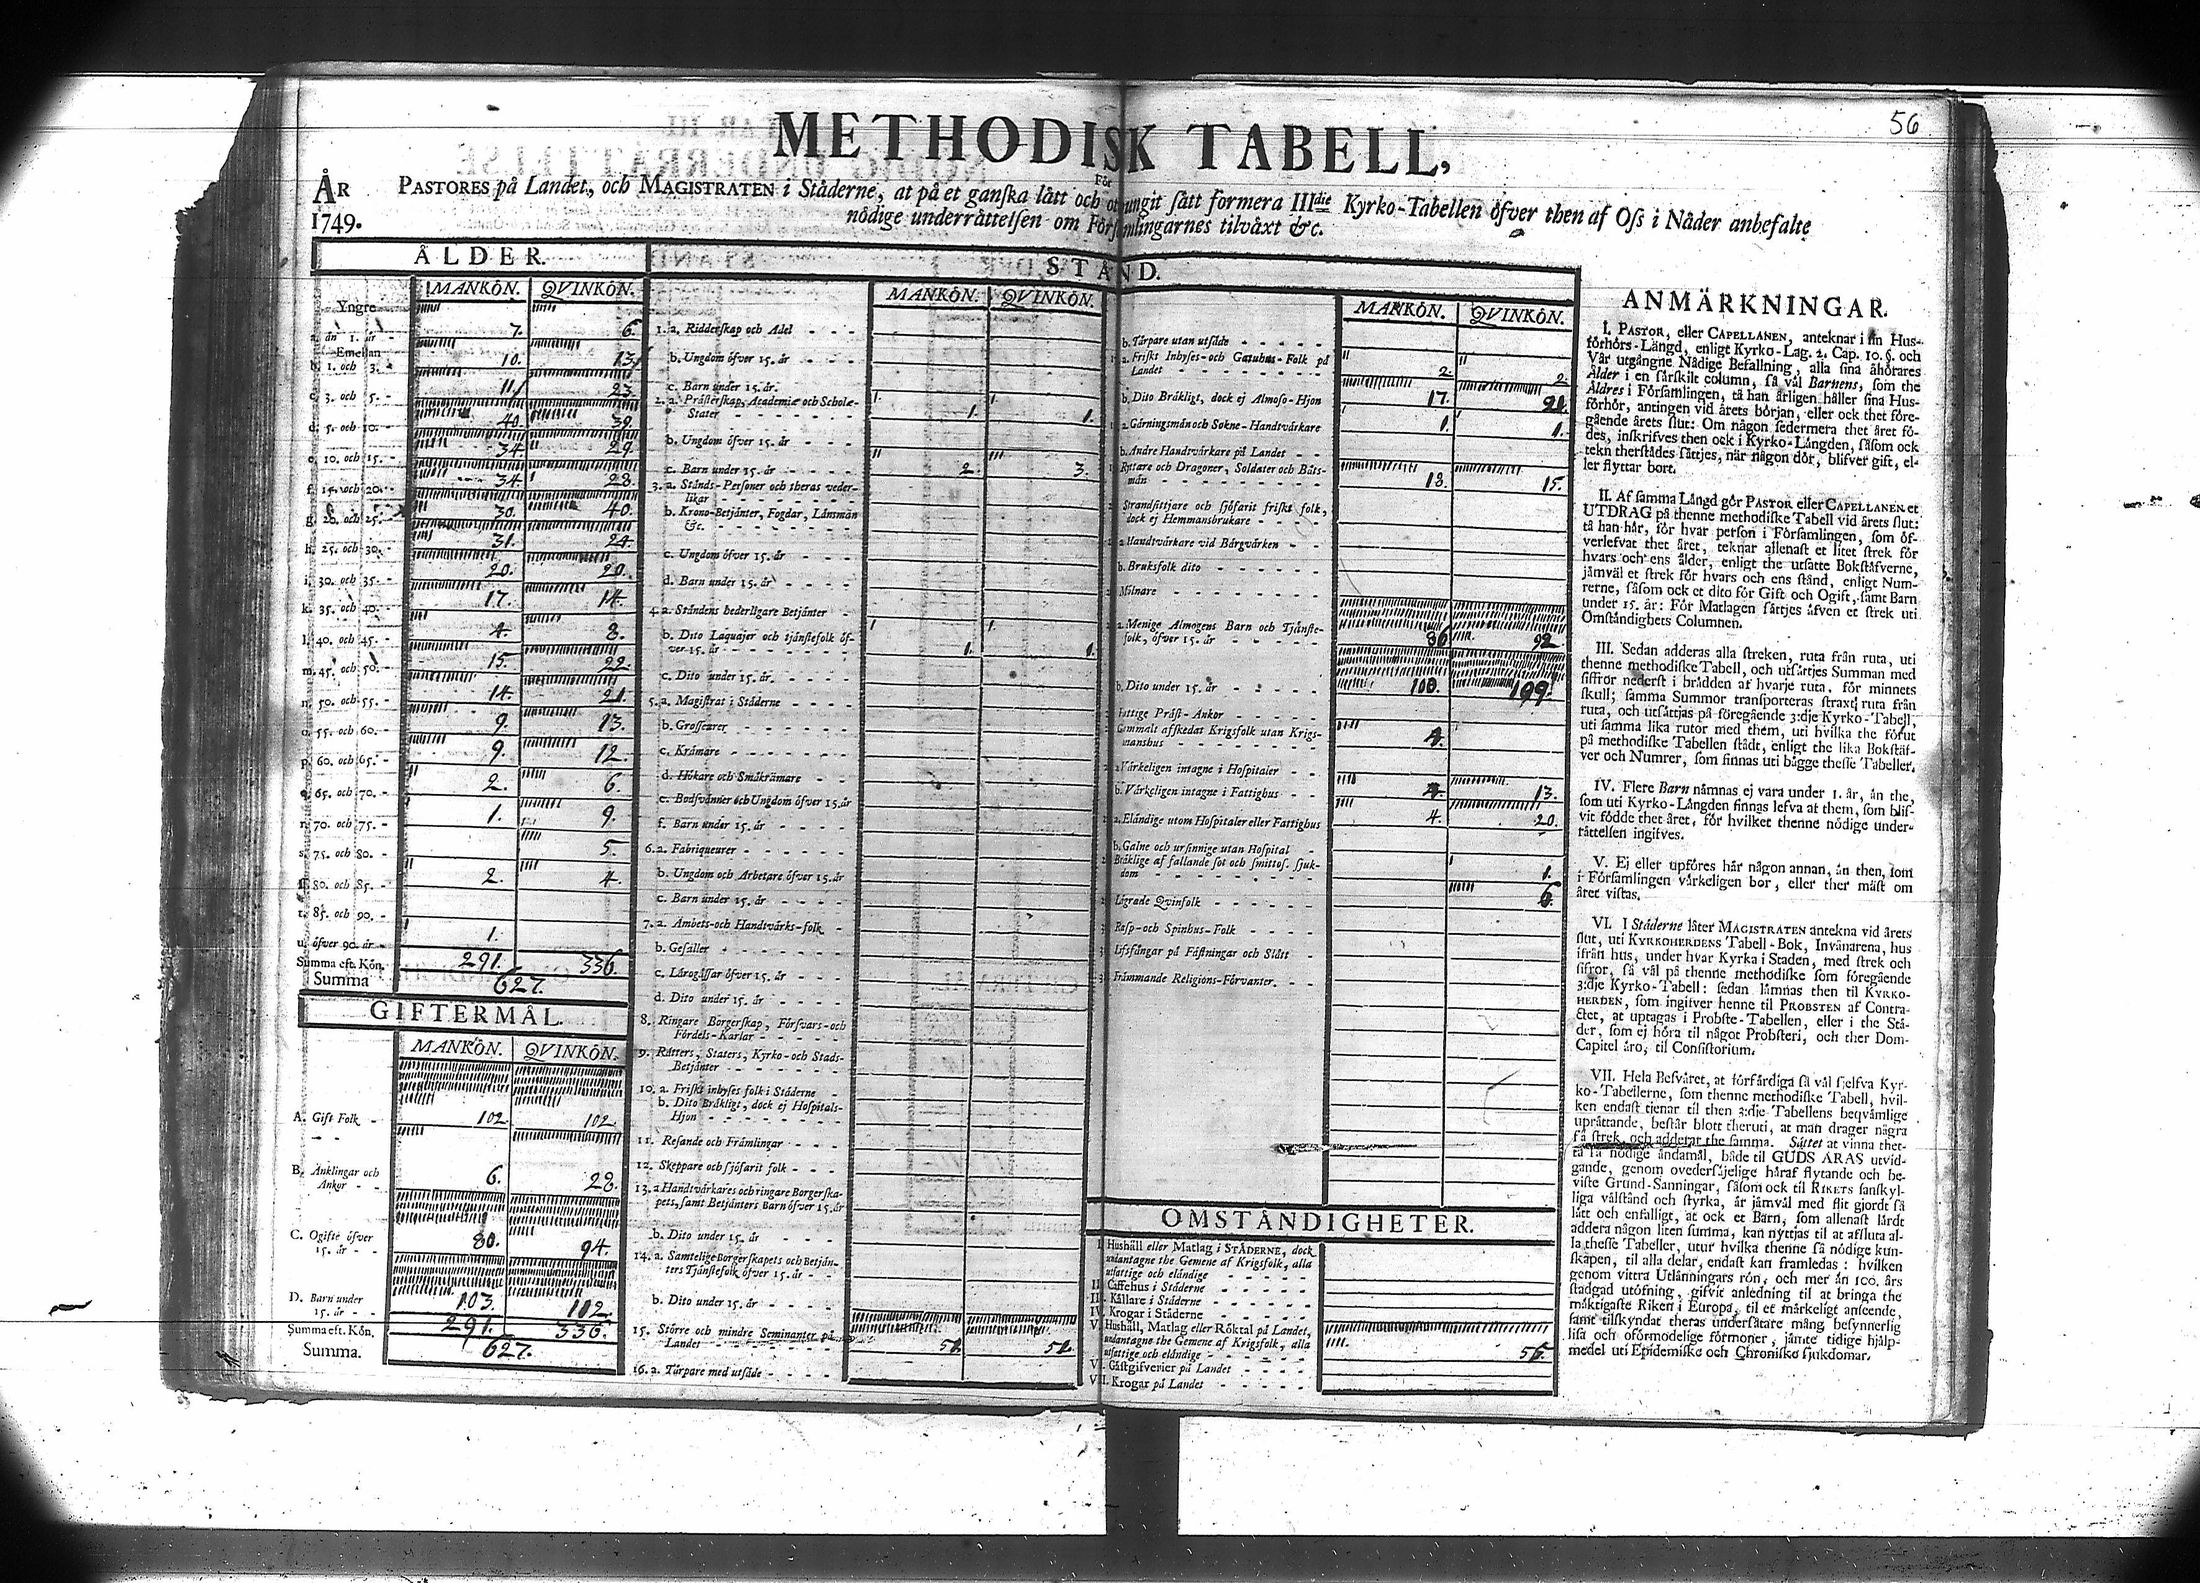 56
METHODISK TABELL,
För
ÅR 1749.
PASTORES på Landet, och MAGISTRATEN i Städerne, at på et ganska lätt och otvungit sätt formera IIIdie Kyrko-Tabellen öfver then af Oss i Nåder anbefalte
nödige underrättelsen om Församlingarnes tilväxt &c.
ÅLDER.
MANKÖN. QVINKÖN.
Yngre
a. än 1. år - 7. 6.
Emellan
b. 1. och 3. 10. 13.
c. 3. och 5. - 11. 23.
d. 5. och 10. - 40. 39.
e. 10. och 15. - 34. 29.
f. 15. och 20. - 34. 28.
g. 20. och 25. - 30. 40.
h. 25. och 30. - 31. 24.
i. 30. och 35. - 20. 20.
k. 35. och 40. - 17. 14.
l. 40. och 45. - 4. 8.
m. 45. och 50. - 15. 22.
n. 50. och 55. - 14. 21.
o. 55. och 60. - 9. 13.
p. 60. och 65. - 9. 12.
q. 65. och 70. - 2. 6.
r. 70. och 75. - 1. 9.
s. 75. och 80. - 5.
ſ. 80. och 85. - 2. 4.
t. 85. och 90. -
u. öfver 90. år - 1.
Summa eft. Kön. 291. 336.
Summa 627.
GIFTERMÅL.
MANKÖN. QVINKÖN.
A. Gift Folk - 102 102
B. Änklingar och
Änkor - - 6. 28.
C. Ogifte öfver
15. år - - 80. 94.
D. Barn under
15. år - - 103. 112.
Summa eft. Kön. 291. 336.
Summa. 627.
STÅND.
MANKÖN. QVINKÖN.
1. a. Ridderskap och Adel - - -
b. Ungdom öfver 15. år - - - -
c. Barn under 15. år.
2. a. Prästerskap, Academiæ och Scholæ-
Stater - - - - - - - 1. 1.
b. Ungdom öfver 15. år - - - -
c. Barn under 15. år - - - - - 2. 3.
3. a. Stånds-Personer och theras veder-
likar - - - - - - -
b. Krono-Betjänter, Fogdar, Länsmän
&c. - - - - - - -
c. Ungdom öfver 15. år - - - -
d. Barn under 15. år - - - -
4. a. Ståndens hederligare Betjänter -
b. Dito Laquajer och tjänstefolk öf-
ver 15. år - - - - - - 1. 1.
c. Dito under 15. år. - - - -
5. a. Magistrat i Städerne - - - -
b. Grosseurer - - - - - -
c. Krämare - - - - - -
d. Hökare och Småkrämare - -
e. Bodsvänner och Ungdom öfver 15. år
f. Barn under 15. år - - - -
6. a. Fabriqueurer - - - - -
b. Ungdom och Arbetare öfver 15. år
c. Barn under 15. år - - - -
7. a. Ämbets- och Handtvärks-folk -
b. Gesäller - - - - - -
c. Lärogåssar öfver 15. år - - -
d. Dito under 15. år - - - -
8. Ringare Borgerskap, Försvars- och
Fördels-Karlar - - - - -
9. Rätters, Staters, Kyrko- och Stads-
Betjänter - - - - - - -
10. a. Friskt inhyses folk i Städerne -
b. Dito Bräkligt, dock ej Hospitals-
Hjon - - - - - - -
11. Resande och Främlingar - - -
12. Skeppare och sjöfarit folk - - -
13. a Handtvärkares och ringare Borgerska-
pets, samt Betjänters Barn öfver 15. år
b. Dito under 15. år - - - -
14. a. Samtelige Borgerskapets och Betjän-
ters Tjänstefolk öfver 15. år - -
b. Dito under 15. år - - - -
15. Större och mindre Seminanter på
Landet - - - - - - -
16. a. Tärpare med utsäde - - - - -
MANKÖN. QVINKÖN.
b. Tärpare utan utsäde - - - -
a. Friskt Inhyses- och Gatuhus-Folk på
Landet - - - - - - - 2. 2.
b. Dito Bräkligt, dock ej Almoso-Hjon 17.
a. Gärningsmän och Sokne-Handtvärkare 1. 1.
b. Andre Handtvärkare på Landet - -
Ryttare och Dragoner, Soldater och Båts-
män - - - - - - - 18. 15.
Strandsittjare och sjöfarit friskt folk,
dock ej Hemmansbrukare - - -
a Handtvärkare vid Bärgvärken - -
b. Bruksfolk dito - - - - -
Mölnare - - - - - -
a. Menige Almogens Barn och Tjänste-
folk, öfver 15. år - - - - 86 92.
b. Dito under 15. år - - - - - 100. 109.
Fattige Präst-Änkor - - - - -
Gammalt affskedat Krigsfolk utan Krigs-
manshus - - - - - - - 4.
a Värkeligen intagne i Hospitaler - -
b. Värkeligen intagne i Fattighus - - 13.
a. Eländige utom Hospitaler eller Fattighus 4. 20.
b. Galne och ursinnige utan Hospital -
Bräklige af fallande sot och smittos. sjuk-
dom - - - - - - - 1.
Lägrade Qvinfolk - - - - - 6.
Rasp- och Spinhus-Folk - - - -
Lifsfångar på Fästningar och Slått -
Främmande Religions-Förvanter. - -
OMSTÄNDIGHETER.
I. Hushåll eller Matlag i STÄDERNE, dock
undantagne the Gemene af Krigsfolk, alla
utfattige och eländige - - - - -
II. Caffehus i Städerne - - - - -
III. Källare i Städerne - - - - -
IV. Krogar i Städerne - - - - -
V. Hushåll, Matlag eller Röktal på Landet,
undantagne the Gemene af Krigsfolk, alla
utfattige och eländige - - - - - 56.
VI. Gästgifverier på Landet - - - -
VII. Krogar på Landet - - - - -
ANMÄRKNINGAR.
I. PASTOR, eller CAPELLANEN, anteknar i sin Hus-
förhörs-Längd, enligt Kyrko-Lag. 2. Cap. 10. §. och
Vår utgångne Nådige Befallning, alla sina åhörares
Ålder i en särskilt column, så väl Barnens, som the
Äldres i Församlingen, tå han årligen håller sina Hus-
förhör, antingen vid årets början, eller ock thet före-
gående årets slut: Om någon sedermera thet året fö-
des, inskrifves then ock i Kyrko-Längden, såsom ock
tekn therstädes sättjes, när någon dör, blifver gift, el-
ler flyttar bort.
II. Af samma Längd gör PASTOR eller CAPELLANEN et
UTDRAG på thenne methodiske Tabell vid årets slut:
tå han här, för hvar person i Församlingen, som öf-
verlefvat thet året, teknar allenast et litet strek för
hvars och ens ålder, enligt the utsatte Bokstäfverne,
jämväl et strek för hvars och ens stånd, enligt Num-
rerne, såsom ock et dito för Gift och Ogift, samt Barn
under 15. år: För Matlagen sättjes äfven et strek uti
Omständighets Columnen.
III. Sedan adderas alla streken, ruta från ruta, uti
thenne methodiske Tabell, och utsättjes Summan med
siffror nederst i brädden af hvarje ruta, för minnets
skull; samma Summor transporteras straxt ruta från
ruta, och utsättjas på föregående 3:dje Kyrko-Tabell,
uti samma lika rutor med them, uti hvilka the förut
på methodiske Tabellen stådt, enligt the lika Bokstäf-
ver och Numrer, som finnas uti bägge thesse Tabeller.
IV. Flere Barn nämnas ej vara under 1. år, än the,
som uti Kyrko-Längden finnas lefva af them, som blif-
vit födde thet året, för hvilket thenne nödige under-
rättelsen ingifves.
V. Ej eller upföres här någon annan, än then, som
i Församlingen värkeligen bor, eller ther mäst om
året vistas.
VI. I Städerne låter MAGISTRATEN antekna vid årets
slut, uti KYRKOHERDENS Tabell-Bok, Invånarena, hus
ifrån hus, under hvar Kyrka i Staden, med strek och
sifror, så väl på thenne methodiske som föregående
3:dje Kyrko-Tabell: sedan lämnas then til KYRKO-
HERDEN, som ingifver henne til PROBSTEN af Contra-
ctet, at uptagas i Probste-Tabellen, eller i the Stä-
der, som ej höra til något Probsteri, och ther Dom-
Capitel äro, til Consistorium.
VII. Hela Besväret, at förfärdiga så väl sjelfva Kyr-
ko-Tabellerne, som thenne methodiske Tabell, hvil-
ken endast tienar til then 3:die Tabellens beqvämlige
uprättande, består blott theruti, at man drager några
få strek, och adderar the samma. Sättet at vinna thet-
ta så nödige ändamål, både til GUDS ÄRAS utvid-
gande, genom ovedersäjelige häraf flytande och be-
viste Grund-Sanningar, såsom ock til RIKETS sanskyl-
liga välstånd och styrka, är jämväl med flit gjordt så
lätt och enfalligt, at ock et Barn, som allenast lärdt
addera någon liten summa, kan nyttjas til at afsluta al-
la thesse Tabeller, utur hvilka thenne så nödige kun-
skapen, til alla delar, endast kan framledas: hvilken
genom vittra Utlänningars rön, och mer än 100. års
stadgad utöfning, gifvit anledning til at bringa the
mäktigaste Riken i Europa, til et märkeligt anseende,
samt tilskyndat theras undersåtare mång besynnerlig
lisa och oförmodelige förmoner, jämte tidige hjälp-
medel uti Epidemiske och Chroniske sjukdomar.